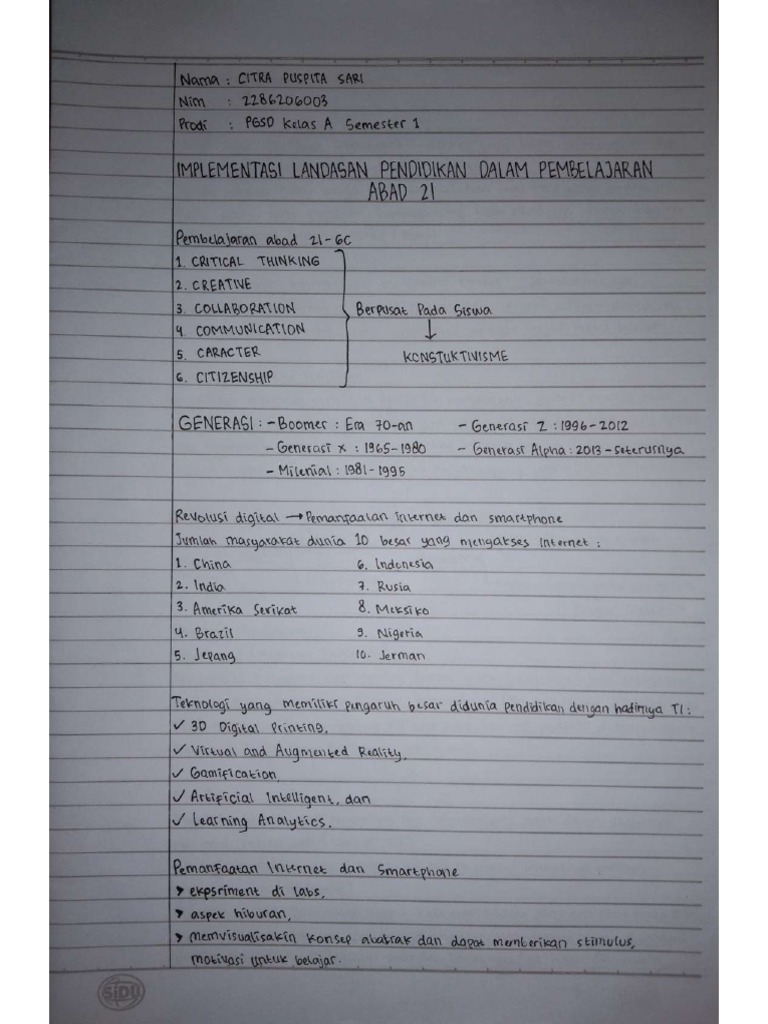 Nama : CITRA PUSPITA SARI
Nim : 2286206003
Prodi : PGSD Kelas A Semester 1
IMPLEMENTASI LANDASAN PENDIDIKAN DALAM PEMBELAJARAN
ABAD 21
Pembelajaran abad 21-6C
1. CRITICAL THINKING
2. CREATIVE
3. COLLABORATION
4 COMMUNICATION
5. CARACTER
6. CITIZENSHIP
Berpusat Pada Siswa
↓
KONSTUKTIVISME
GENERASI : - Boomer : Era 70-an - Generasi Z : 1996-2012
- Generasi x : 1965-1980 - Generasi Alpha : 2013 - seterusnya
- Milenial : 1981-1995
Revolusi digital → Pemanfaatan internet dan smartphone
Jumlah masyarakat dunia 10 besar yang mengakses Internet :
1. China 6. Indonesia
2. India 7. Rusia
3. Amerika Serikat 8. Meksiko
4. Brazil 9. Nigeria
5. Jepang 10. Jerman
Teknologi yang memiliki pengaruh besar didunia pendidikan dengan hadirnya TI :
✓ 3D Digital Printing,
✓ Virtual and Augmented Reality,
✓ Gamification,
✓ Artificial Intelligent, dan
✓ Learning Analytics.
Pemanfaatan Internet dan Smartphone
➤ ekpsriment di labs,
➤ aspek hiburan,
➤ memvisualisakin konsep abstrak dan dapat memberikan stimulus,
motivasi untuk belajar.
SiDU